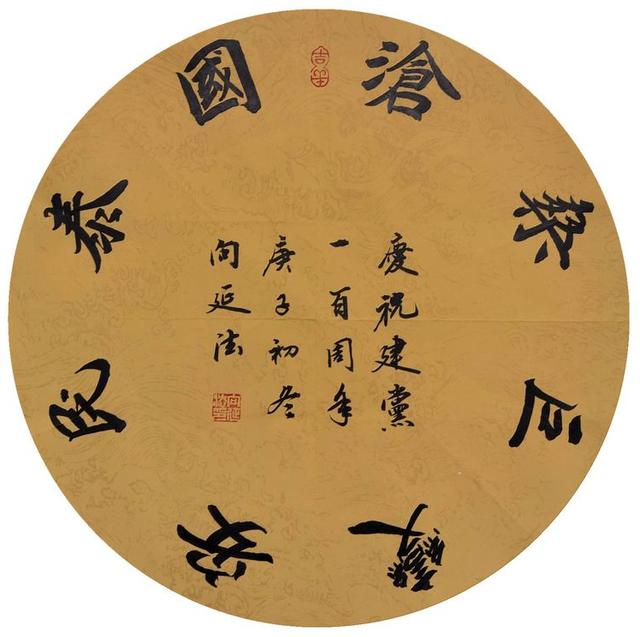 滄桑巨變
國泰民安
慶祝建黨
一百周年
庚子初冬
向延法
吉羊